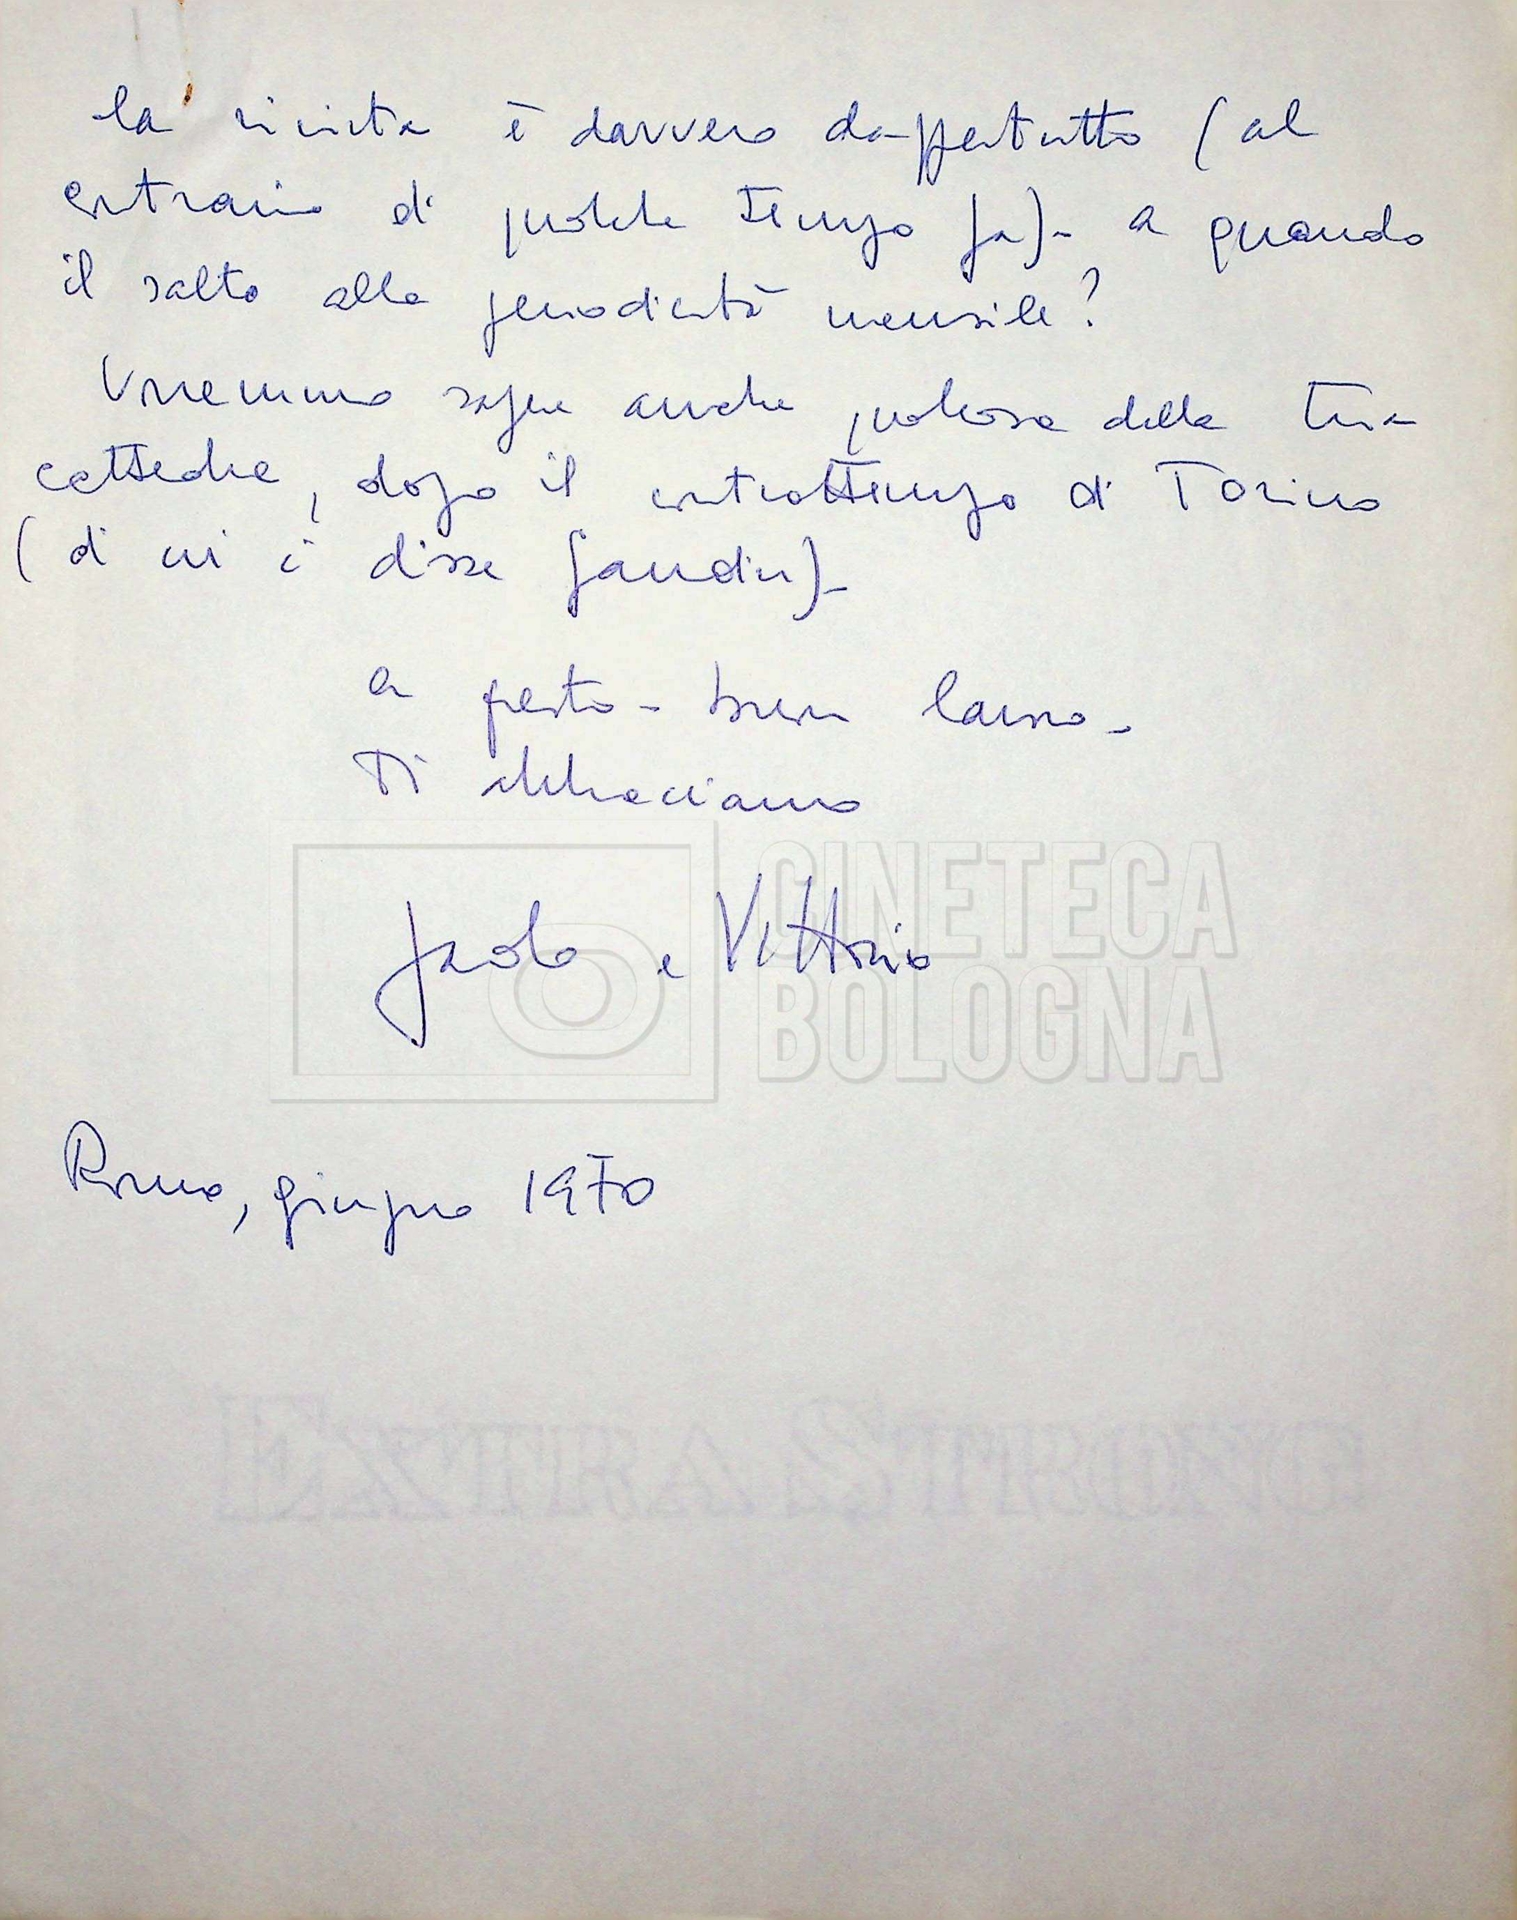 la rivista è davvero da-ppertutto (al
contrario di qualche tempo fa)- a quando
il salto alla periodicità mensile?
Vorremmo sapere anche qualcosa della tua
cattedra, dopo il contrattempo di Torino
(di cui ci disse
a presto - buon lavoro -
Ti abbracciamo
Paolo e Vittorio
CINETECA
BOLOGNA
Roma, giugno 1970
EXTRA STRONG